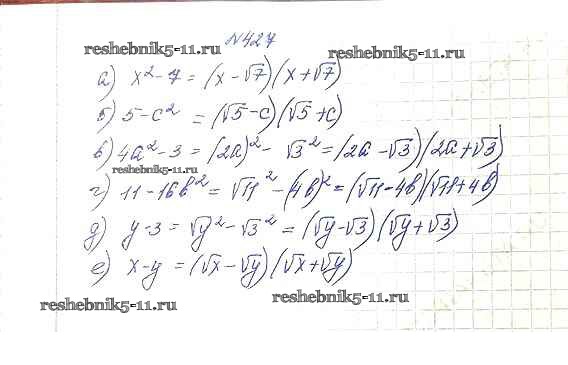 №427
reshebnik5-11.ru
reshebnik5-11.ru
а) x² - 7 = (x - √7)(x + √7)
б) 5 - c² = (√5 - c)(√5 + c)
в) 4a² - 3 = (2a)² - √3² = (2a - √3)(2a + √3)
reshebnik5-11.ru
г) 11 - 16b² = √11² - (4b)² = (√11 - 4b)(√11 + 4b)
д) y - 3 = √y² - √3² = (√y - √3)(√y + √3)
е) x - y = (√x - √y)(√x + √y)
reshebnik5-11.ru
reshebnik5-11.ru